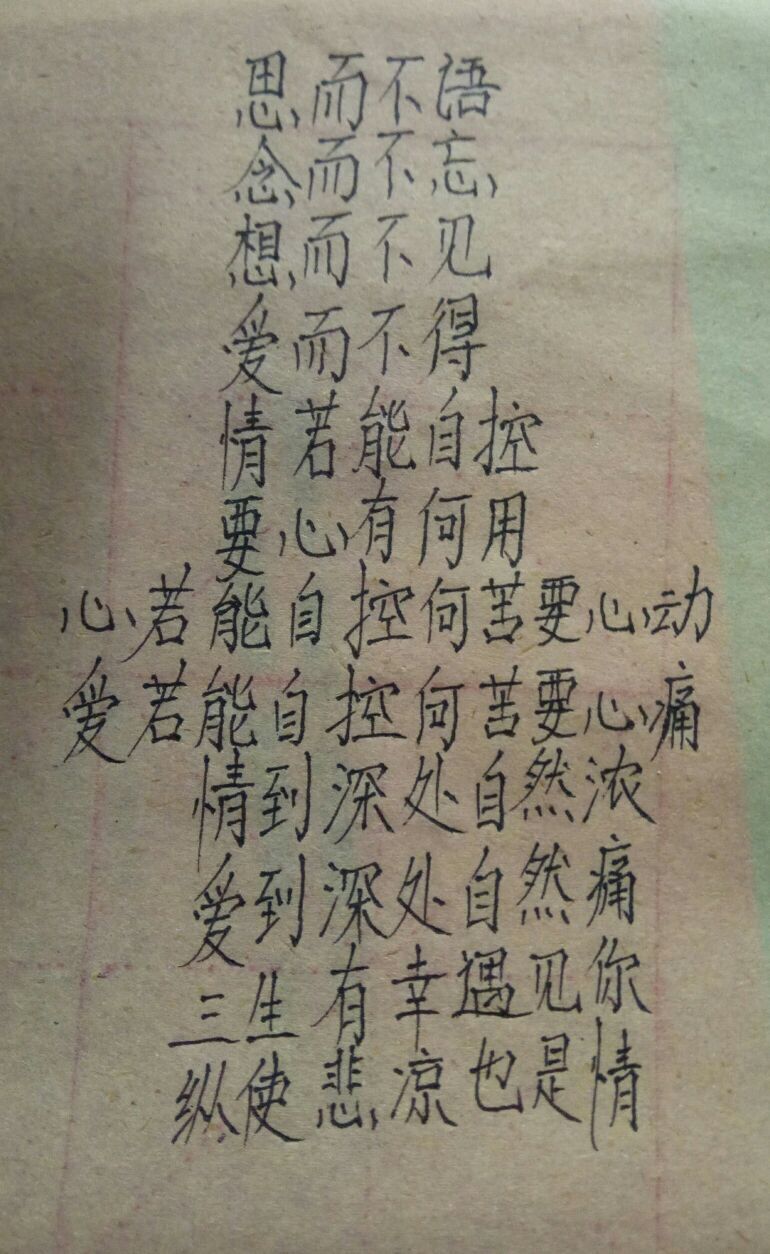 思而不语
念而不忘
想而不见
爱而不得
情若能自控
要心有何用
心若能自控何苦要心动
爱若能自控何苦要心痛
情到深处自然浓
爱到深处自然痛
三生有幸遇见你
纵使悲凉也是情